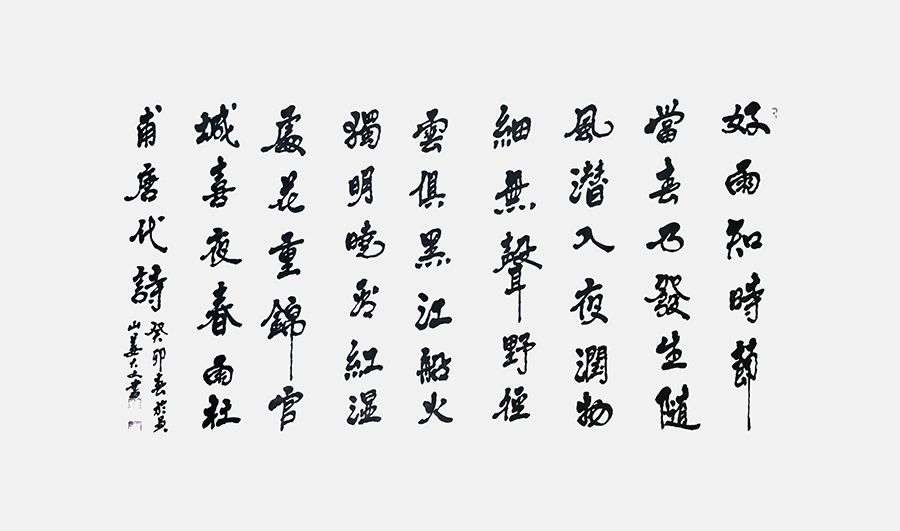 好雨知時節
當春乃發生隨
風潛入夜潤物
細無聲野徑
雲俱黑江船火
獨明曉看紅湿
處花重錦官
城喜夜春雨杜
甫唐代詩
癸卯春於黄
山姜大文書